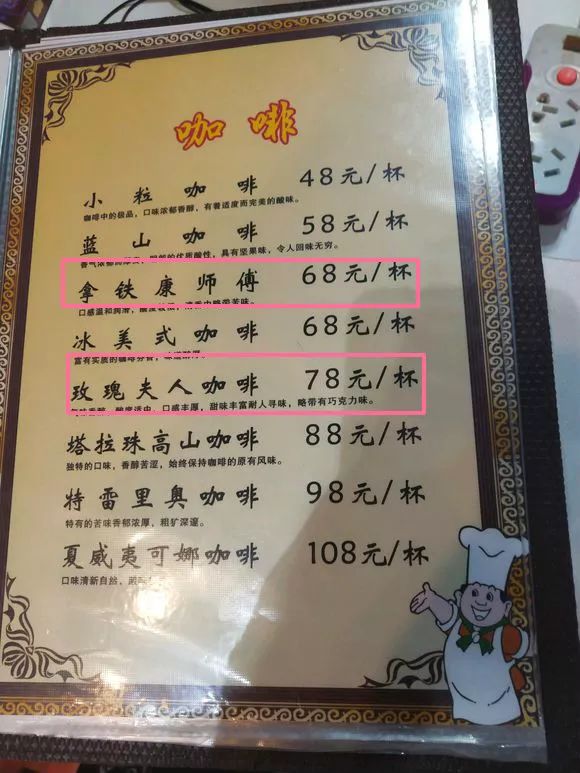 咖啡
小粒咖啡 48元/杯
咖啡中的极品，口味浓郁香醇，有着适度而完美的酸味。
蓝山咖啡 58元/杯
的优质酸性，具有坚果味，令人回味无穷。
拿铁康师傅 68元/杯
口感温和润滑，略带苦味。
冰美式咖啡 68元/杯
富有实质的咖啡
玫瑰夫人咖啡 78元/杯
酸度适中，口感丰厚，甜味丰富耐人寻味，略带有巧克力味。
塔拉珠高山咖啡 88元/杯
独特的口味，香醇苦涩，始终保持咖啡的原有风味。
特雷里奥咖啡 98元/杯
特有的苦味香郁浓厚，粗犷深邃。
夏威夷可娜咖啡 108元/杯
口味清新自然，